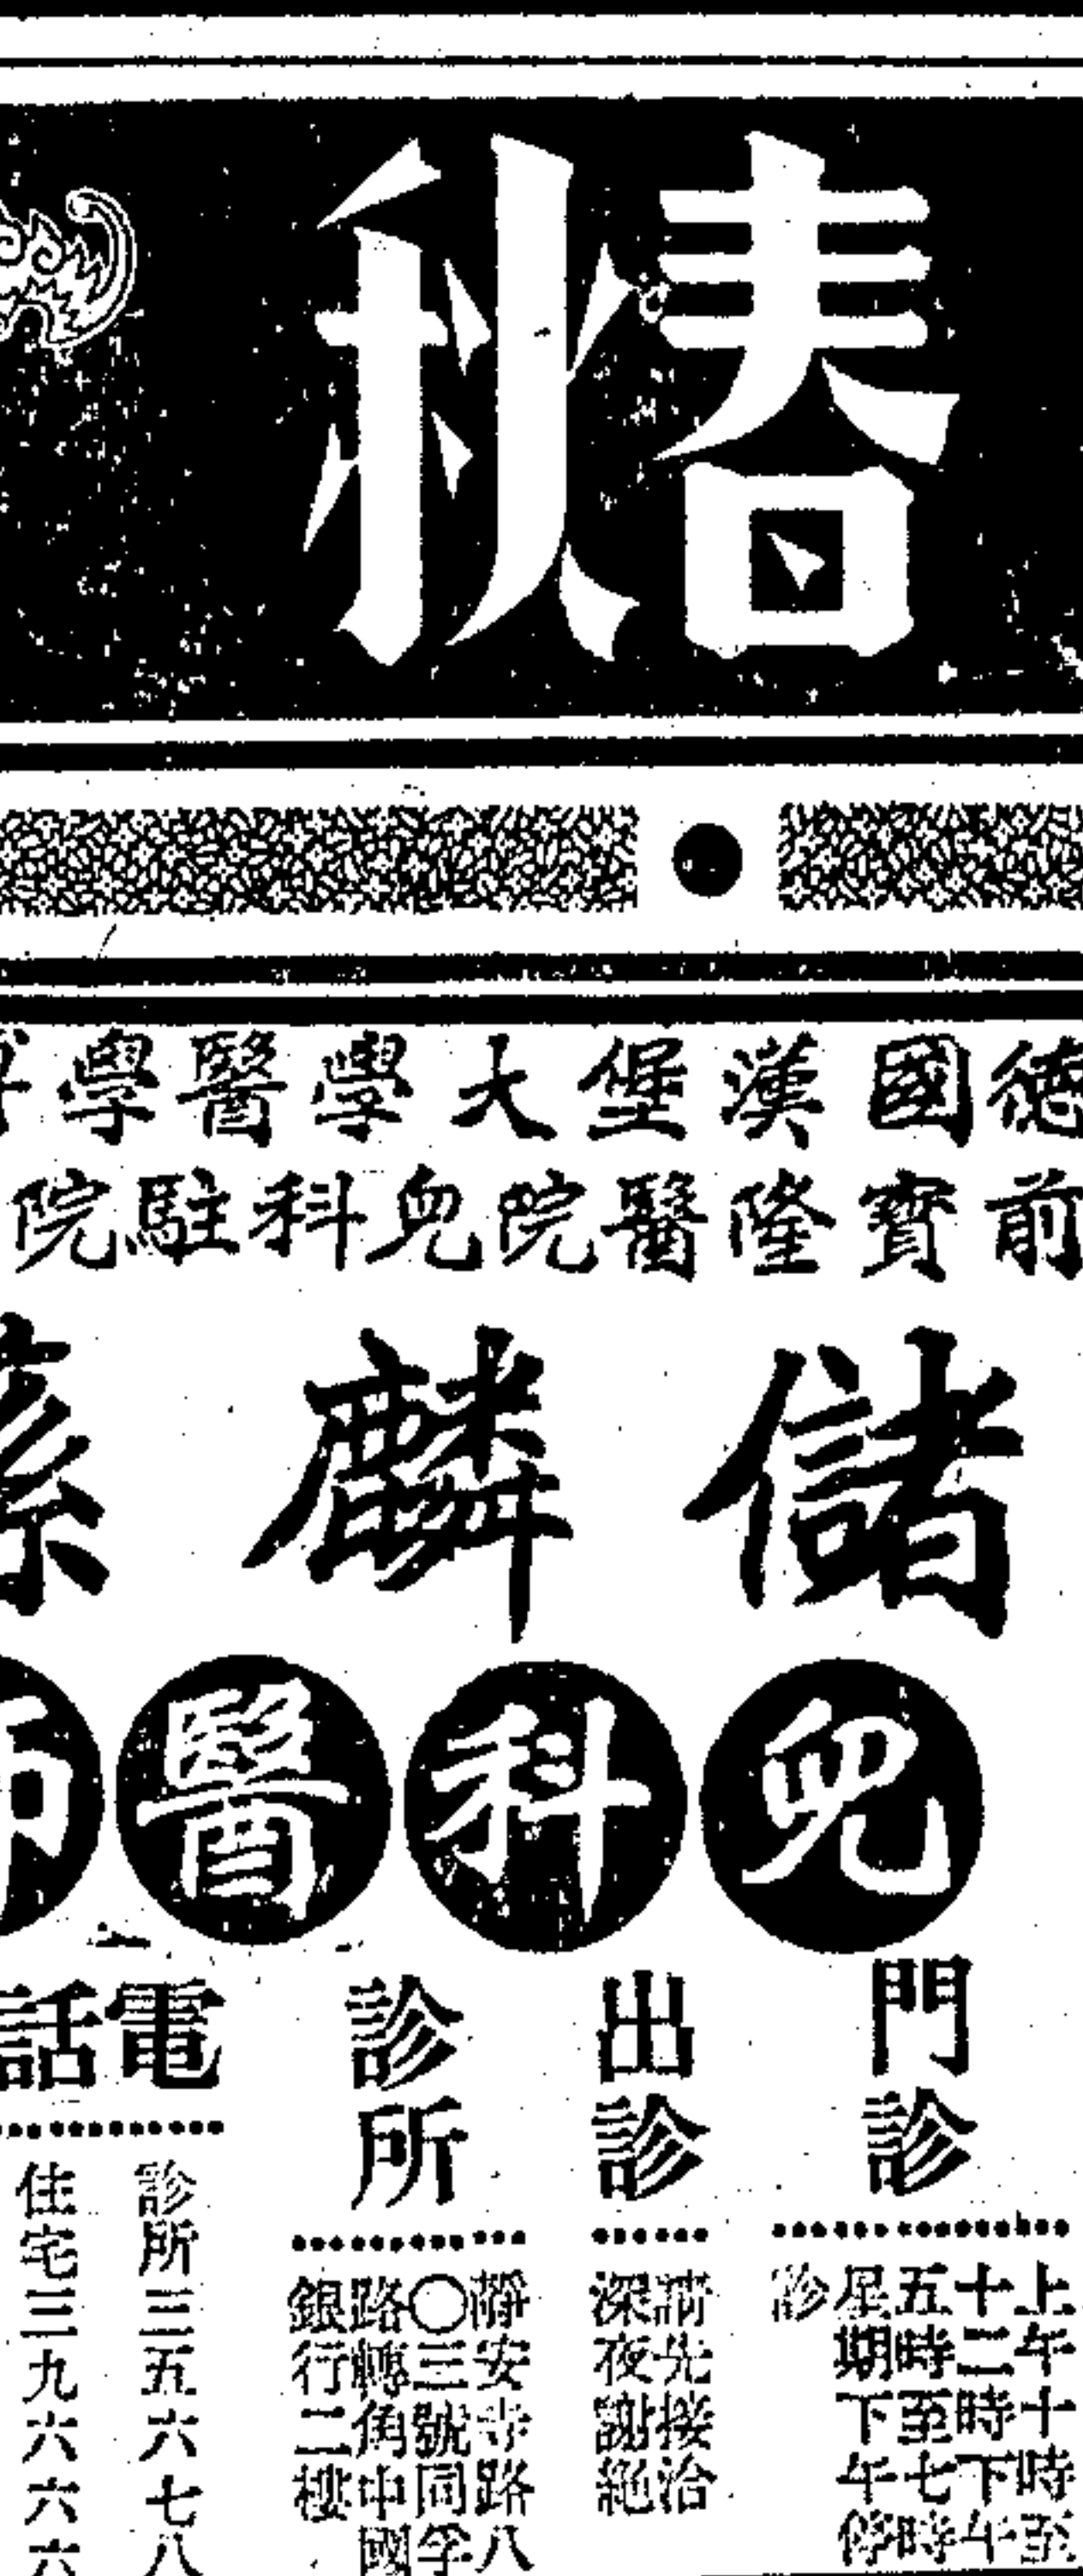 春秋
德國漢堡大學醫學
前寶隆醫院兒科駐院
儲麟
兒科醫
門診
上午十時至
十二時下午
五時至七時
星期下午停
診
出診
請先接洽
深夜謝絕
診所
靜安寺路八
〇三號同孚
路轉角中國
銀行二樓
電話
診所三五六七八
住宅三九六六六